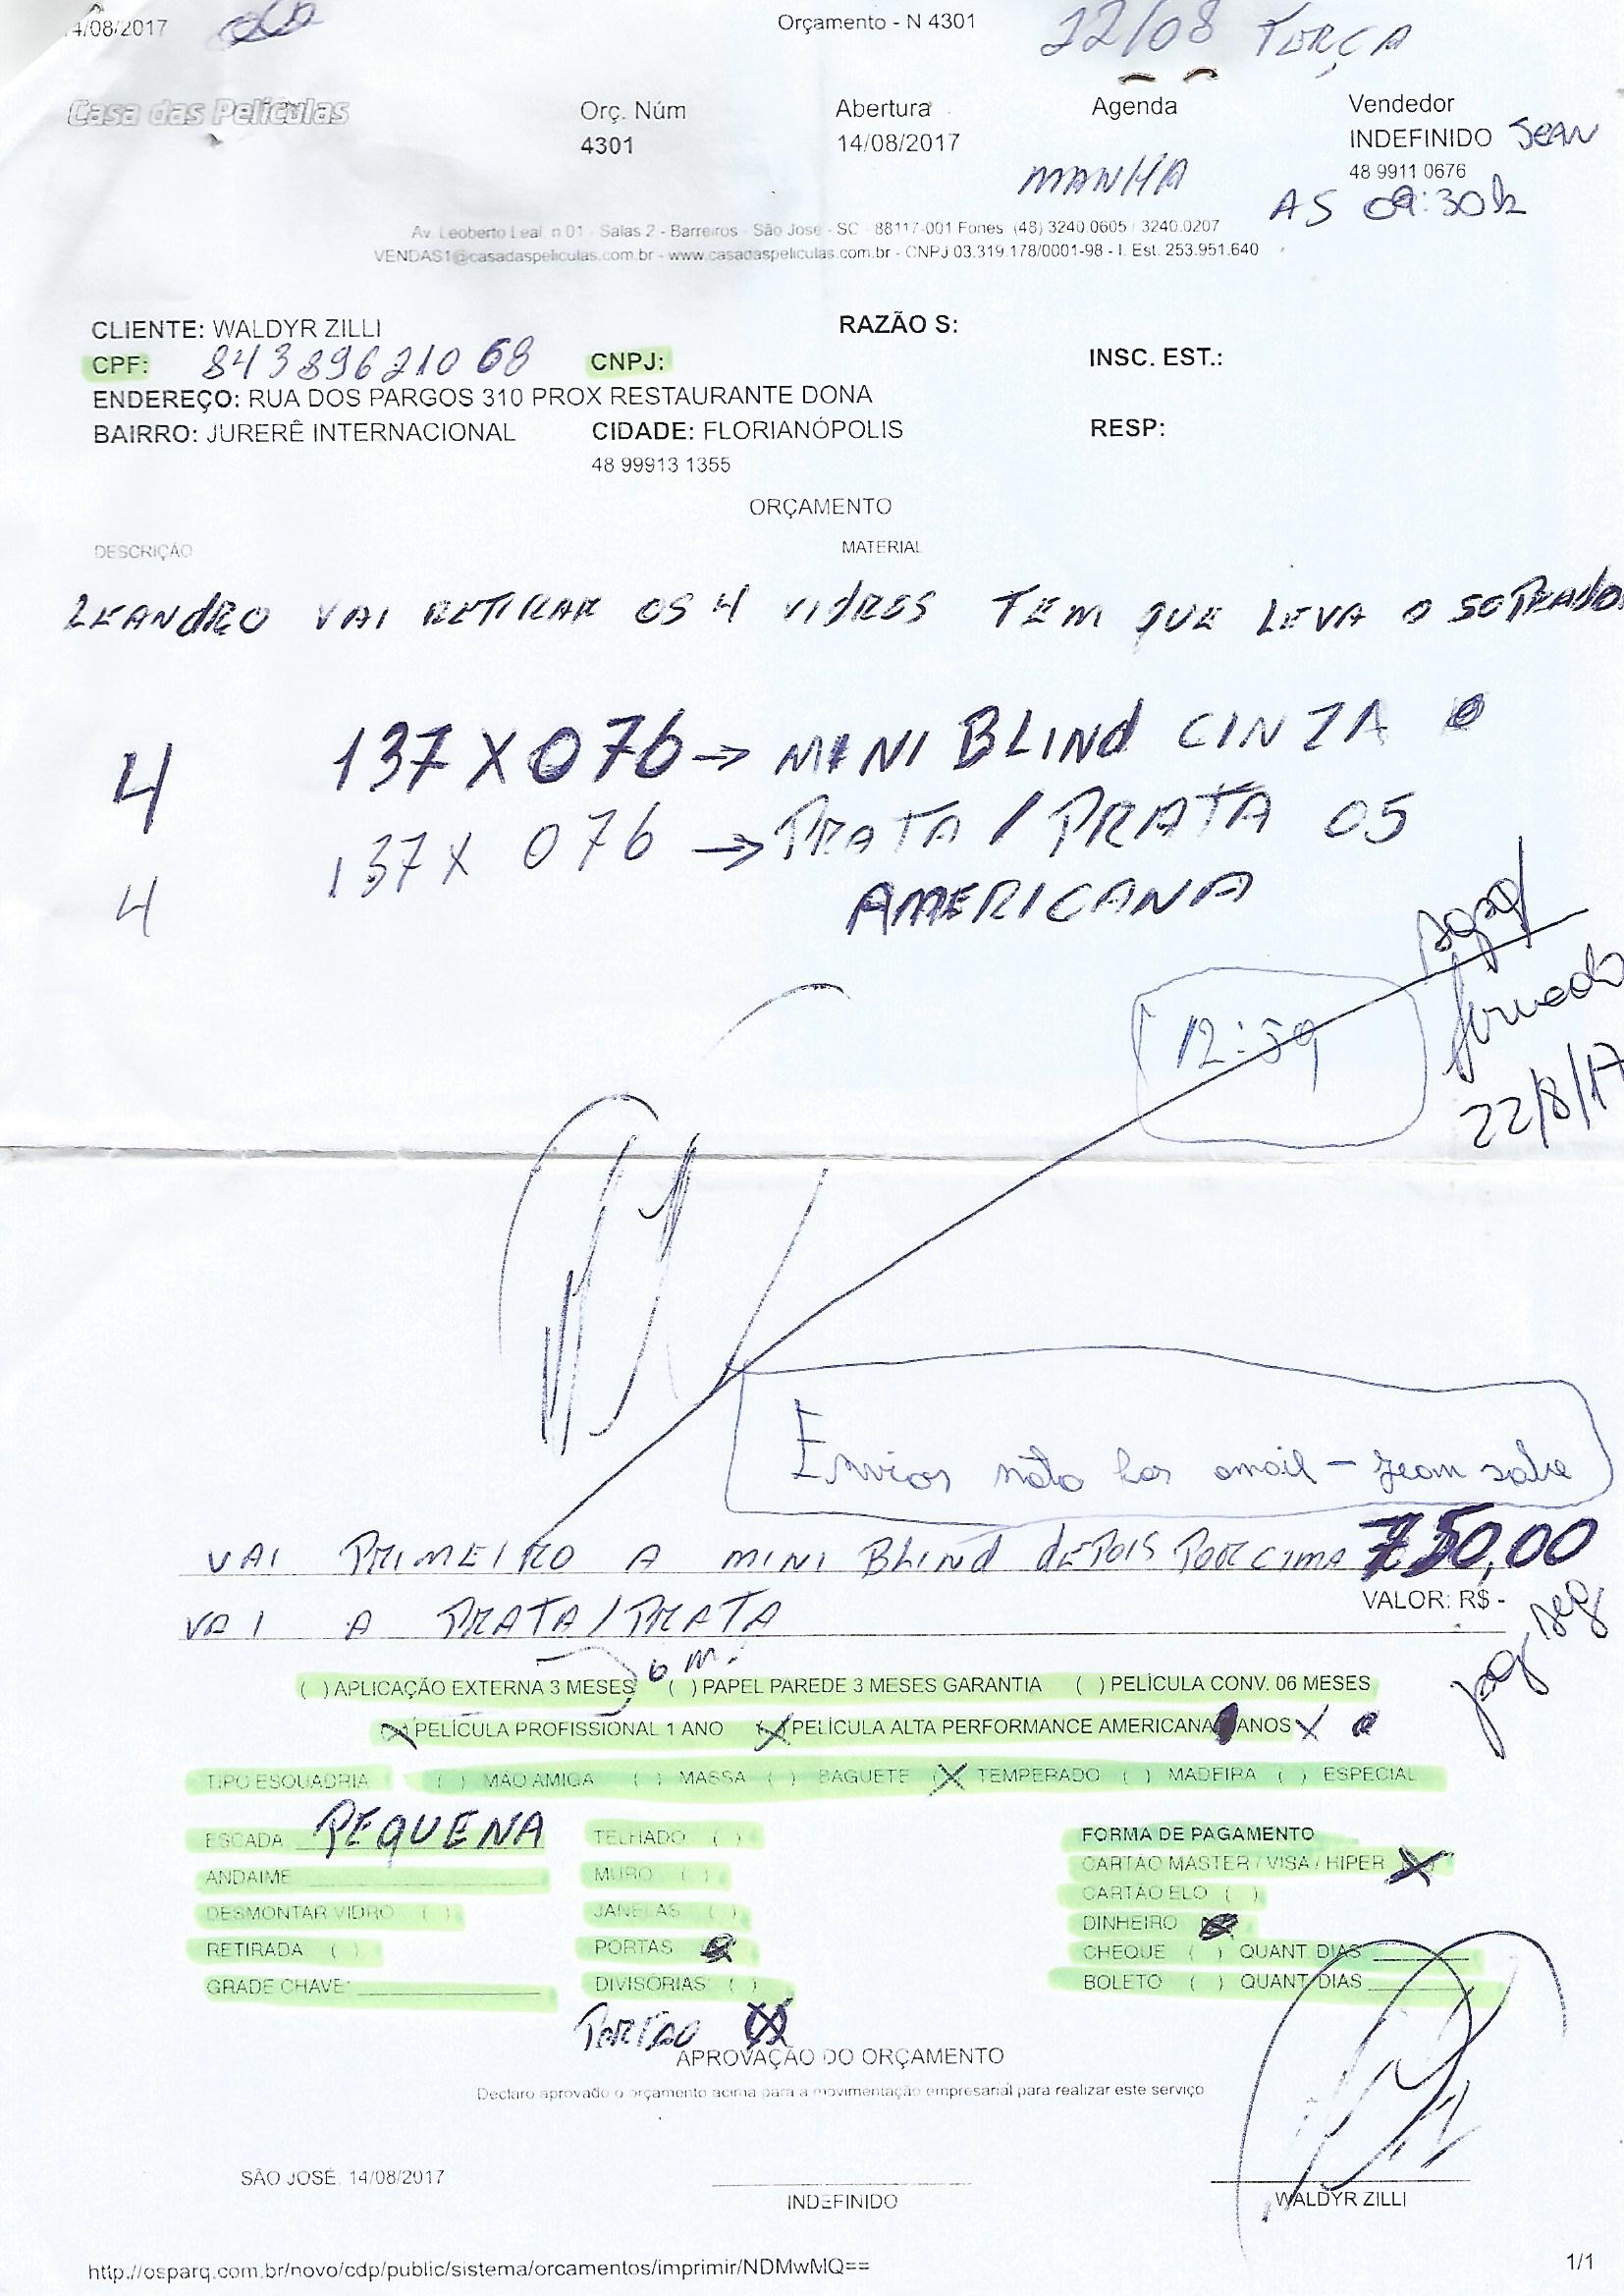 4/08/2017
Orçamento - N 4301
22/08 TERÇA
Casa das Películas
Orç. Núm
Abertura
Agenda
Vendedor
4301
14/08/2017
INDEFINIDO JEAN
48 9911 0676
MANHA
AS 09:30h
Av. Leoberto Leal, n 01 - Salas 2 - Barreiros - São José - SC - 88117-001 Fones (48) 3240.0605 / 3240.0207
VENDAS1@casadaspeliculas.com.br - www.casadaspeliculas.com.br - CNPJ 03.319.178/0001-98 - I. Est. 253.951.640
CLIENTE: WALDYR ZILLI
RAZÃO S:
CPF: 84389621068
CNPJ:
INSC. EST.:
ENDEREÇO: RUA DOS PARGOS 310 PROX RESTAURANTE DONA
BAIRRO: JURERÊ INTERNACIONAL
CIDADE: FLORIANÓPOLIS
RESP:
48 99913 1355
ORÇAMENTO
DESCRIÇÃO
MATERIAL
LEANDRO VAI RETIRAR OS 4 VIDROS TEM QUE LEVA O SOPRADOR
4 137 X 076 → MINI BLIND CINZA
4 137 X 076 → PRATA / PRATA 05
AMERICANA
12:59
22/8/17
Enviar nota por email - Jean sabe
VAI PRIMEIRO A MINI BLIND DEPOIS POR CIMA
750,00
VALOR: R$ -
VAI A PRATA / PRATA
pag seg
6 m.
( ) APLICAÇÃO EXTERNA 3 MESES ( ) PAPEL PAREDE 3 MESES GARANTIA ( ) PELÍCULA CONV. 06 MESES
(X) PELÍCULA PROFISSIONAL 1 ANO (X) PELÍCULA ALTA PERFORMANCE AMERICANA ANOS X
TIPO ESQUADRIA ( ) MÃO AMIGA ( ) MASSA ( ) BAGUETE (X) TEMPERADO ( ) MADEIRA ( ) ESPECIAL
ESCADA PEQUENA
TELHADO ( )
FORMA DE PAGAMENTO
ANDAIME
MURO ( )
CARTÃO MASTER / VISA / HIPER (X)
DESMONTAR VIDRO ( )
JANELAS ( )
CARTÃO ELO ( )
RETIRADA ( )
PORTAS
DINHEIRO
GRADE CHAVE
DIVISÓRIAS ( )
CHEQUE ( ) QUANT DIAS
BOLETO ( ) QUANT DIAS
PORTÃO (X)
APROVAÇÃO DO ORÇAMENTO
Declaro aprovado o orçamento acima para a movimentação empresarial para realizar este serviço
SÃO JOSÉ, 14/08/2017
INDEFINIDO
WALDYR ZILLI
http://osparq.com.br/novo/cdp/public/sistema/orcamentos/imprimir/NDMwMQ==
1/1